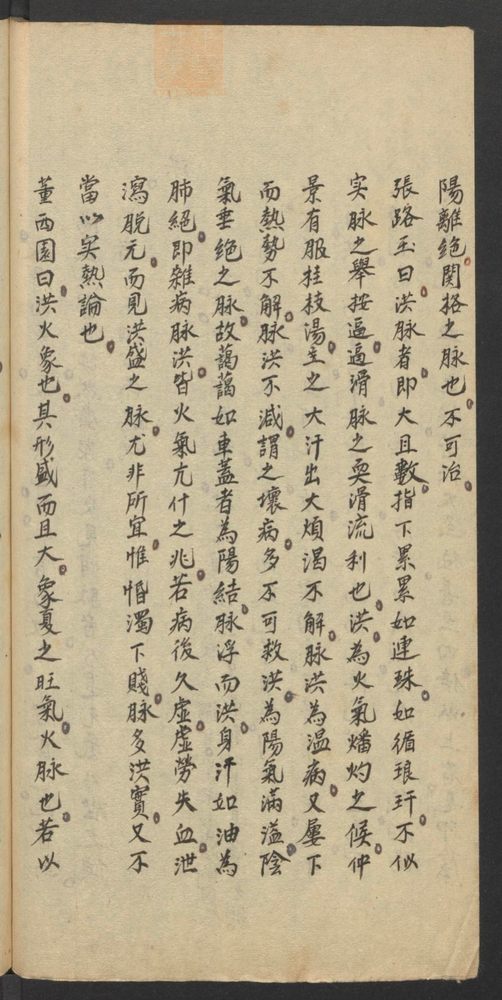 陽離絶関格之脉也不可治
張路玉曰洪脉者即大且數指下累累如連珠如循琅玕不似
实脉之舉按逼逼滑脉之耎滑流利也洪為火氣燔灼之候仲
景有服桂枝湯主之大汗出大煩渴不解脉洪為温病又屢下
而熱勢不解脉洪不减謂之壞病多不可救洪為陽氣滿溢陰
氣垂绝之脉故藹藹如車蓋者為陽結脉浮而洪身汗如油為
肺絕即雜病脉洪皆火氣亢什之兆若病後久虛虛勞失血泄
瀉脱元而見洪盛之脉尤非所宜惟惛濁下賤脉多洪實又不
當以实熱論也
董西園曰洪火象也其形盛而且大象夏之旺氣火脉也若以